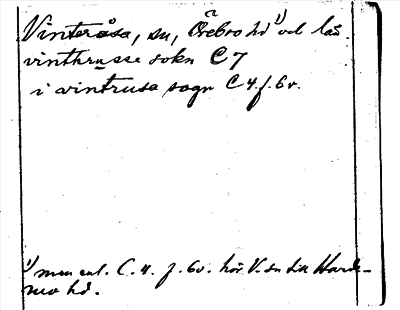 Vinteråsa, sn, Örebro hd ¹) och läs
vinthrusse sokn C 7
i vintrusa sogn C 4. f. 6 v.
¹) men enl. C. 4. f. 6 v. hör V. sn till Hard-
mo hd.